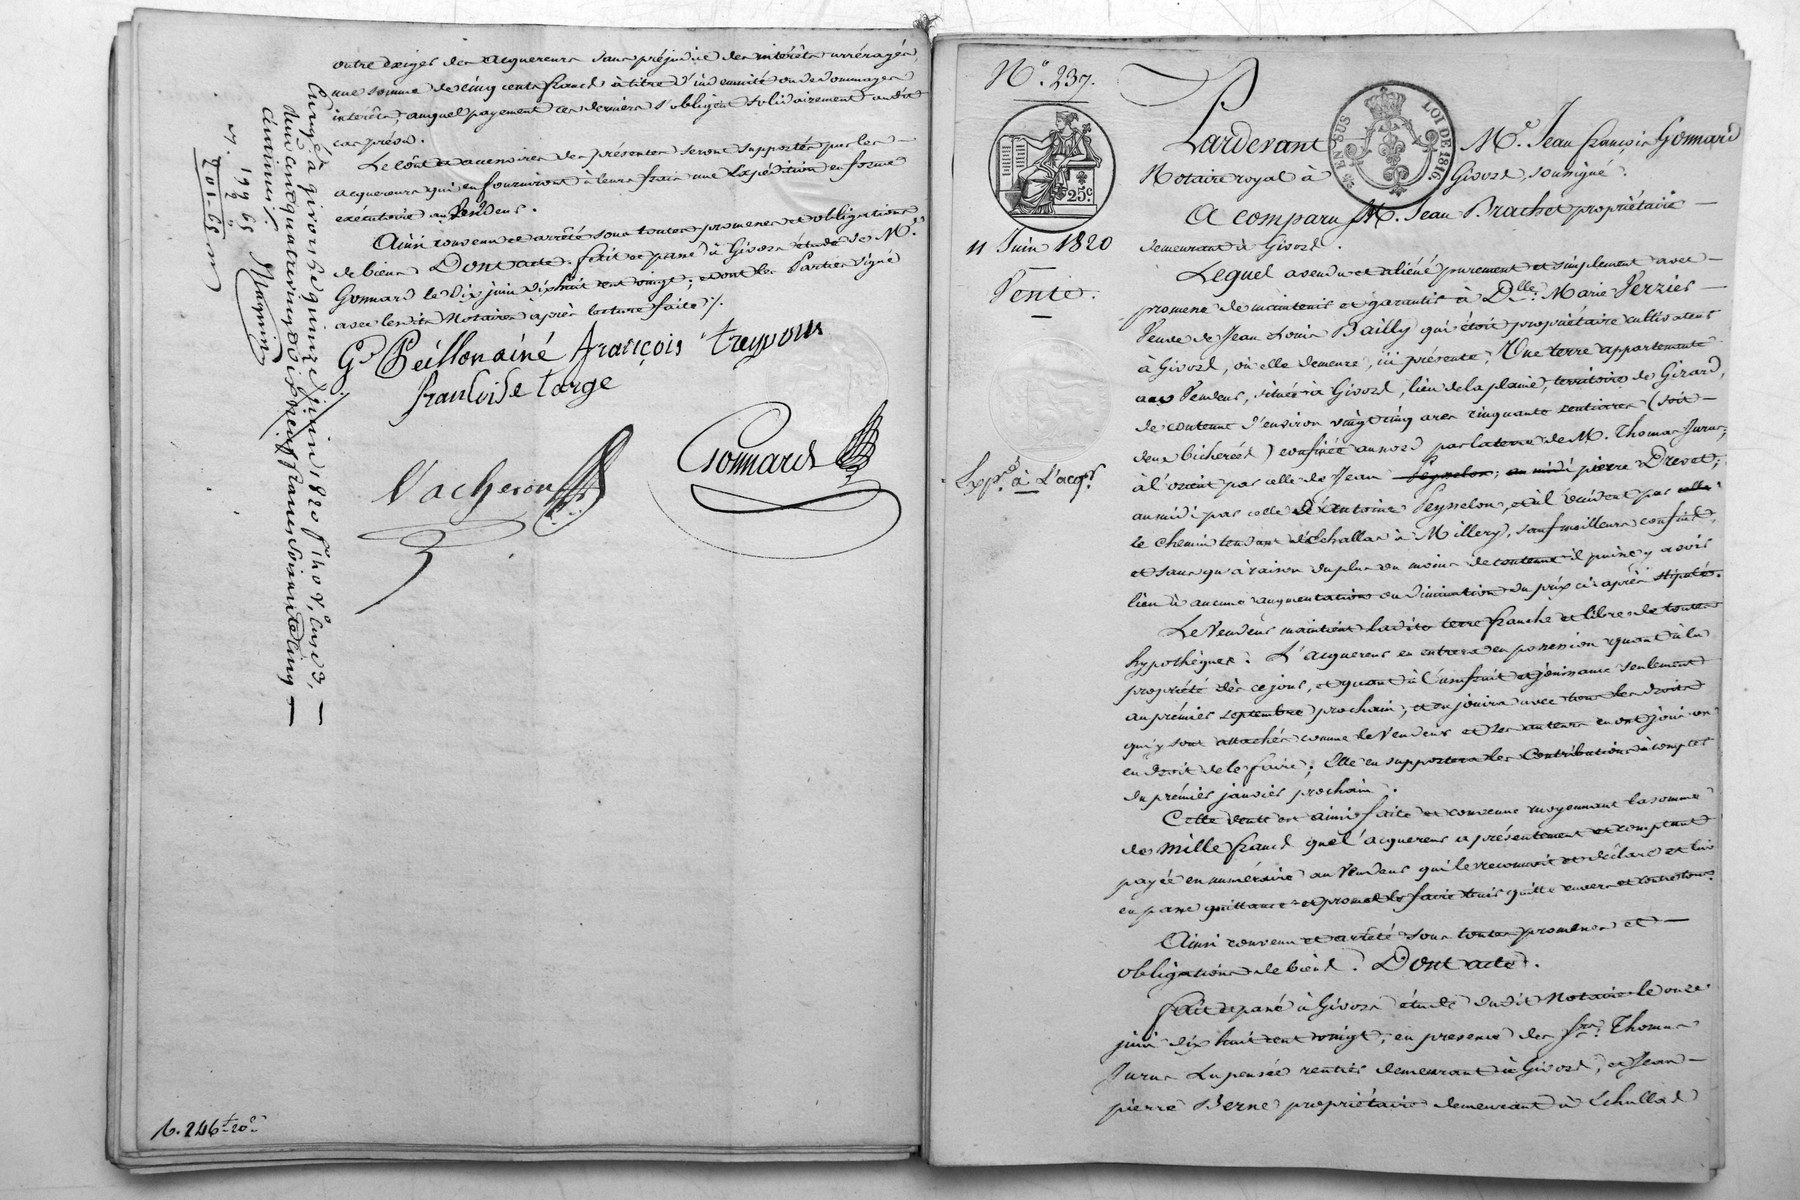 outre exigés des acquereurs sans préjudice des intérêts arréragés,
une somme de cinq cents francs à titre d'indemnité ou de dommages
intérêts, auquel payement ces derniers s'obligent solidairement audit
cas prévu.
Le coût et accessoires des présentes seront supportés par les
acquereurs qui en fourniront à leurs frais une Expédition en forme
exécutoire au Vendeur.
Ainsi convenu et arrêté sous toutes promesses et obligations
de biens. Dont acte. fait et passé à Givors étude de Me.
Gonnard le dix juin dix huit cent vingt; et ont les Parties signé
avec les dits Notaires après lecture faite./.
Ge. Peillon ainé françois treyvoux
francoise targe
Vacheron
Gonnard
Enregé à givors le quinze juin 1820 fo. 40 Vo. Case 3,
deux cent quatre vingt dix neuf francs soixante cinq
centimes.
199 65
2 "
201. 65
16. 246 20
No. 237.
25c.
EN SUS
LOI DE 1816.
11 Juin 1820
Vente.
Expon. à L'acqr.
Pardevant Me. Jean françois Gonnard
Notaire royal à Givors, soussigné.
A comparu M. Jean Brachet propriétaire
demeurant à Givors.
Lequel a vendu et aliéné purement et simplement avec
promesse de maintenir et garantir à Dlle. Marie Verzier
Veuve de Jean Louis Bailly qui étoit propriétaire cultivateur
à Givors, où elle demeure, ici présente, Une terre appartenante
au Vendeur, située à Givors, lieu de la plaine, territoire de Gizard,
de contenue d'environ vingt cinq ares cinquante centiares (soit
deux bicherées) confinée au nord par la terre de M. Thomas Jurus,
à l'orient par celle de Jean pierre Drevet;
au midi par celle d'Antoine Peysselon, et à l'occident par
le chemin tendant d'Echallas à Millery, sauf meilleurs confins,
et sans qu'à raison du plus ou moins de contenue il puisse y avoir
lieu à aucune augmentation ou diminution du prix ci-après stipulé.
Le Vendeur maintient ladite terre franche et libre de toutes
hypothèques. L'acquereur en entrera en possession quant à la
propriété dès ce jour, et quant à l'usufruit et jouissance seulement
au premier septembre prochain; et en jouira avec tous les droits
qui y sont attachés comme le Vendeur et ses auteurs en ont joui ou
eu droit de le faire; Elle en supportera les Contributions à compter
du premier janvier prochain.
Cette vente est ainsi faite et convenue moyennant la somme
de mille francs que l'acquereur a présentement et comptant
payée en numéraire au Vendeur qui le reconnoit et déclare et lui
en passe quittance et promet le faire tenir quitte envers et contre tous.
Ainsi convenu et arrêté sous toutes promesses et
obligations de biens. Dont acte.
fait et passé à Givors étude dudit Notaire le onze
juin dix huit cent vingt, en présence des Srs. Thomas
Jurus Lapensée rentier demeurant à Givors, et Jean
pierre Berne propriétaire demeurant à Echallas